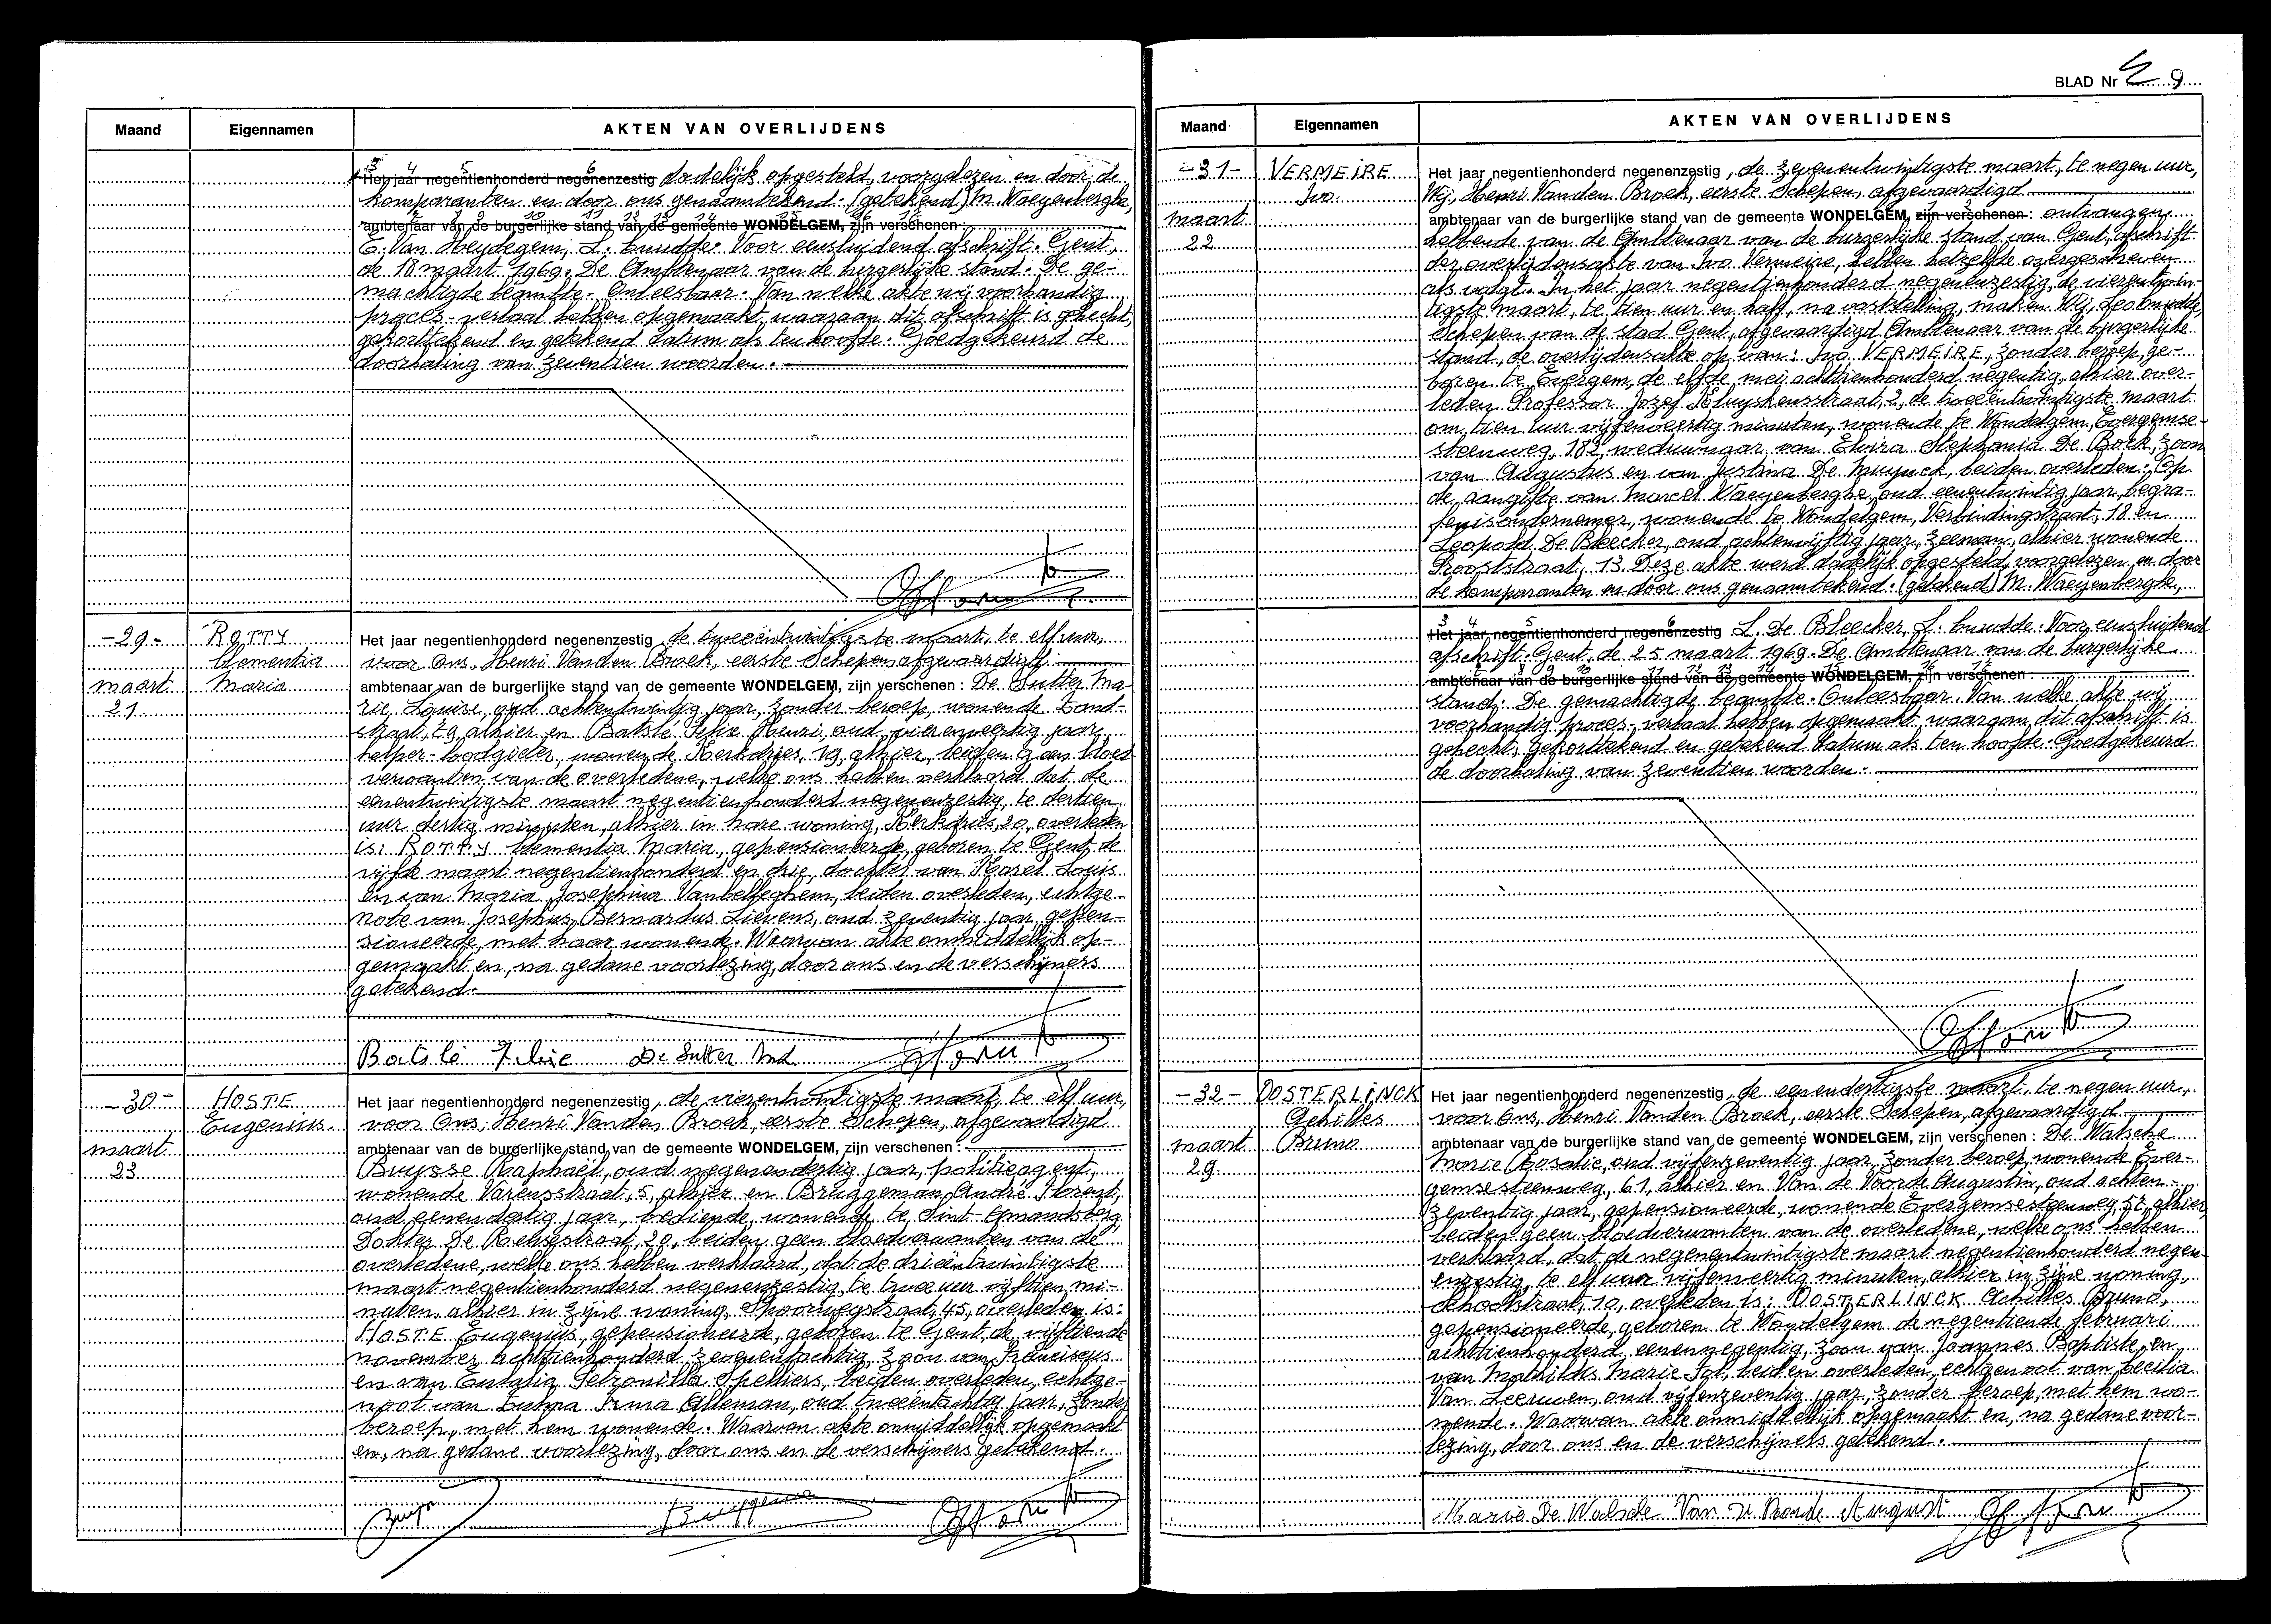 Maand Eigennamen AKTEN VAN OVERLIJDENS
3 4 5 6
Het jaar negentienhonderd negenenzestig dadelijk opgesteld, voorgelezen en door de
komparanten en door ons genaamtekend. (getekend) M. Waeyenberghe,
7 8 9 10 11 12 13 14 15 16 17
ambtenaar van de burgerlijke stand van de gemeente WONDELGEM, zijn verschenen :
E. Van Heydegem, L. Cnudde. Voor eensluidend afschrift. Gent,
de 18 maart 1969. De Ambtenaar van de burgerlijke stand. De ge-
machtigde beambte. Onleesbaar. Van welke akte wij voorhandig
proces-verbaal hebben opgemaakt, waaraan dit afschrift is gehecht,
gekorttekend en getekend datum als ten hoofde. Goedgekeurd de
doorhaling van zeventien woorden.
-29- ROTTY
Clementia
Maria
maart
21
Het jaar negentienhonderd negenenzestig, de tweeëntwintigste maart, te elf uur,
voor Ons, Henri Vanden Broek, eerste Schepen, afgevaardigd
ambtenaar van de burgerlijke stand van de gemeente WONDELGEM, zijn verschenen : De Sutter Ma-
rie Louise, oud achtentwintig jaar, zonder beroep, wonende Zand-
straat, 29, alhier en Batslé Felix Henri, oud vierenveertig jaar,
helper-loodgieter, wonende Kerkdries, 19, alhier, beiden geen bloed-
verwanten van de overledene, welke ons hebben verklaard dat de
eenentwintigste maart negentienhonderd negenenzestig, te dertien
uur dertig minuten, alhier in hare woning, Kerkdries, 20, overleden
is: ROTTY Clementia Maria, gepensioneerde, geboren te Gent de
vijfde maart negentienhonderd en drie, dochter van Karel Louis
en van Maria Josephina Vanbelleghem, beiden overleden, echtge-
note van Josephus Bernardus Lievens, oud zeventig jaar, gepen-
sioneerde, met haar wonende. Waarvan akte onmiddellijk op-
gemaakt en, na gedane voorlezing, door ons en de verschijners
getekend.
Batslé Felix De Sutter
-30- HOSTE
Eugenius.
maart
23
Het jaar negentienhonderd negenenzestig, de vierentwintigste maart, te elf uur,
voor Ons, Henri Vanden Broek, eerste Schepen, afgevaardigd
ambtenaar van de burgerlijke stand van de gemeente WONDELGEM, zijn verschenen :
Bruysse Raphaël, oud negenendertig jaar, politieagent,
wonende Varensstraat, 5, alhier en Bruggeman André Florent,
oud eenendertig jaar, bediende, wonende te Sint-Amandsberg,
Dokter De straat, 20, beiden geen bloedverwanten van de
overledene, welke ons hebben verklaard, dat de drieëntwintigste
maart negentienhonderd negenenzestig, te twee uur vijftien mi-
nuten, alhier in zijne woning, Spoorwegstraat, 45, overleden is:
HOSTE Eugenius, gepensioneerde, geboren te Gent, de vijftiende
november achttienhonderd zevenentachtig, zoon van Franciscus
en van Eulalia Petronilla Speliers, beiden overleden, echtge-
noot van Irma Alleman, oud tweeëntachtig jaar, zonder
beroep, met hem wonende. Waarvan akte onmiddellijk opgemaakt
en, na gedane voorlezing, door ons en de verschijners getekend.
Bruggeman
BLAD Nr 9
Maand Eigennamen AKTEN VAN OVERLIJDENS
-31- VERMEIRE
Ivo.
maart
22
Het jaar negentienhonderd negenenzestig, de zevenentwintigste maart, te negen uur,
Wij, Henri Vanden Broek, eerste Schepen, afgevaardigd
1 2
ambtenaar van de burgerlijke stand van de gemeente WONDELGEM, zijn verschenen : ontvangen
hebbende van de Ambtenaar van de burgerlijke stand van Gent, afschrift
der overlijdensakte van Ivo Vermeire, hebben hetzelfde overgeschreven
als volgt. In het jaar negentienhonderd negenenzestig, de vierentwin-
tigste maart, te tien uur en half, na vaststelling, maken Wij, Leo Cnudde,
Schepen van de stad Gent, afgevaardigd Ambtenaar van de burgerlijke
stand, de overlijdensakte op van: Ivo VERMEIRE, zonder beroep, ge-
boren te Evergem, de elfde mei achttienhonderd negentig, alhier over-
leden Professor Jozef Kluyskensstraat, 2, de tweeëntwintigste maart
om tien uur vijfenveertig minuten, wonende te Wondelgem, Evergemse-
steenweg, 182, weduwnaar van Elvira Stephania De Bock, zoon
van Augustus en van Justina De Muynck, beiden overleden. Op
de aangifte van Marcel Waeyenberghe, oud eenentwintig jaar, begra-
fenisondernemer, wonende te Wondelgem, Verbindingstraat, 18 en
Leopold De Bleecker, oud achtenvijftig jaar, zeeman, alhier wonende
Prooststraat, 13. Deze akte werd dadelijk opgesteld, voorgelezen en door
de komparanten en door ons genaamtekend. (getekend) M. Waeyenberghe,
3 4 5 6
Het jaar negentienhonderd negenenzestig L. De Bleecker, L. Cnudde. Voor eensluidend
afschrift. Gent, de 25 maart 1969. De Ambtenaar van de burgerlijke
7 8 9 10 11 12 13 14 15 16 17
ambtenaar van de burgerlijke stand van de gemeente WONDELGEM, zijn verschenen :
stand. De gemachtigde beambte. Onleesbaar. Van welke akte wij
voorhandig proces-verbaal hebben opgemaakt waaraan dit afschrift is
gehecht, gekorttekend en getekend datum als ten hoofde. Goedgekeurd
de doorhaling van zeventien woorden.
-32- OOSTERLINCK
Achilles
Bruno
maart
29
Het jaar negentienhonderd negenenzestig, de eenendertigste maart, te negen uur,
voor Ons, Henri Vanden Broek, eerste Schepen, afgevaardigd
ambtenaar van de burgerlijke stand van de gemeente WONDELGEM, zijn verschenen : De Walsche
Marie Rosalie, oud vijfenzeventig jaar, zonder beroep, wonende Ever-
gemsesteenweg, 61, alhier en Van de Voorde Augustin, oud achten-
zeventig jaar, gepensioneerde, wonende Evergemsesteenweg, 57, alhier,
beiden geen bloedverwanten van de overledene, welke ons hebben
verklaard, dat de negenentwintigste maart negentienhonderd negen-
enzestig, te elf uur vijfenveertig minuten, alhier in zijne woning,
Schoolstraat, 10, overleden is: OOSTERLINCK Achilles Bruno,
gepensioneerde, geboren te Wondelgem de negentiende februari
achttienhonderd eenennegentig, zoon van Joannes Baptiste en
van Mathildis Marie Tol, beiden overleden, echtgenoot van Cecilia
Van Leeuwen, oud vijfenzeventig jaar, zonder beroep, met hem wo-
nende. Waarvan akte onmiddellijk opgemaakt en, na gedane voor-
lezing, door ons en de verschijners getekend.
Marie De Walsche Van de Voorde August